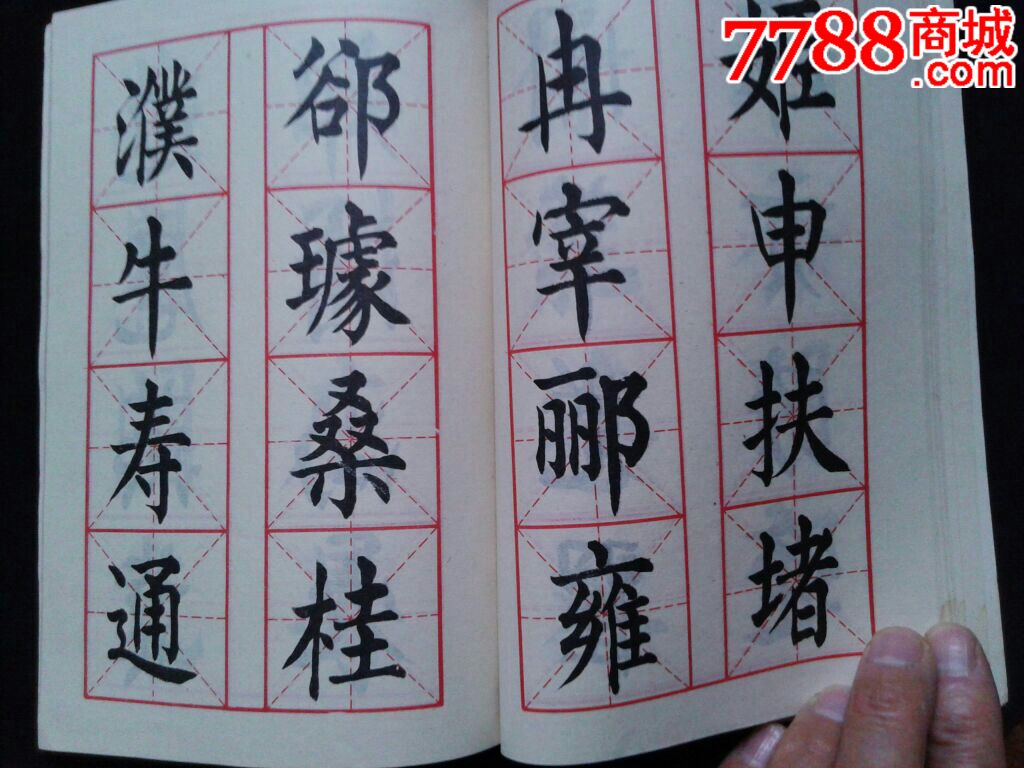 7788商城
.com
姬申扶堵
冉宰郦雍
郤璩桑桂
濮牛寿通